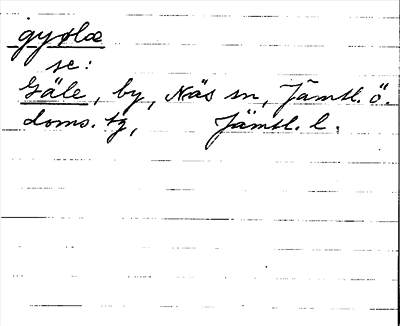 gyølæ
se:
Gäle, by, Näs sn, Jämtl. ö.
doms. tg, Jämtl. l.